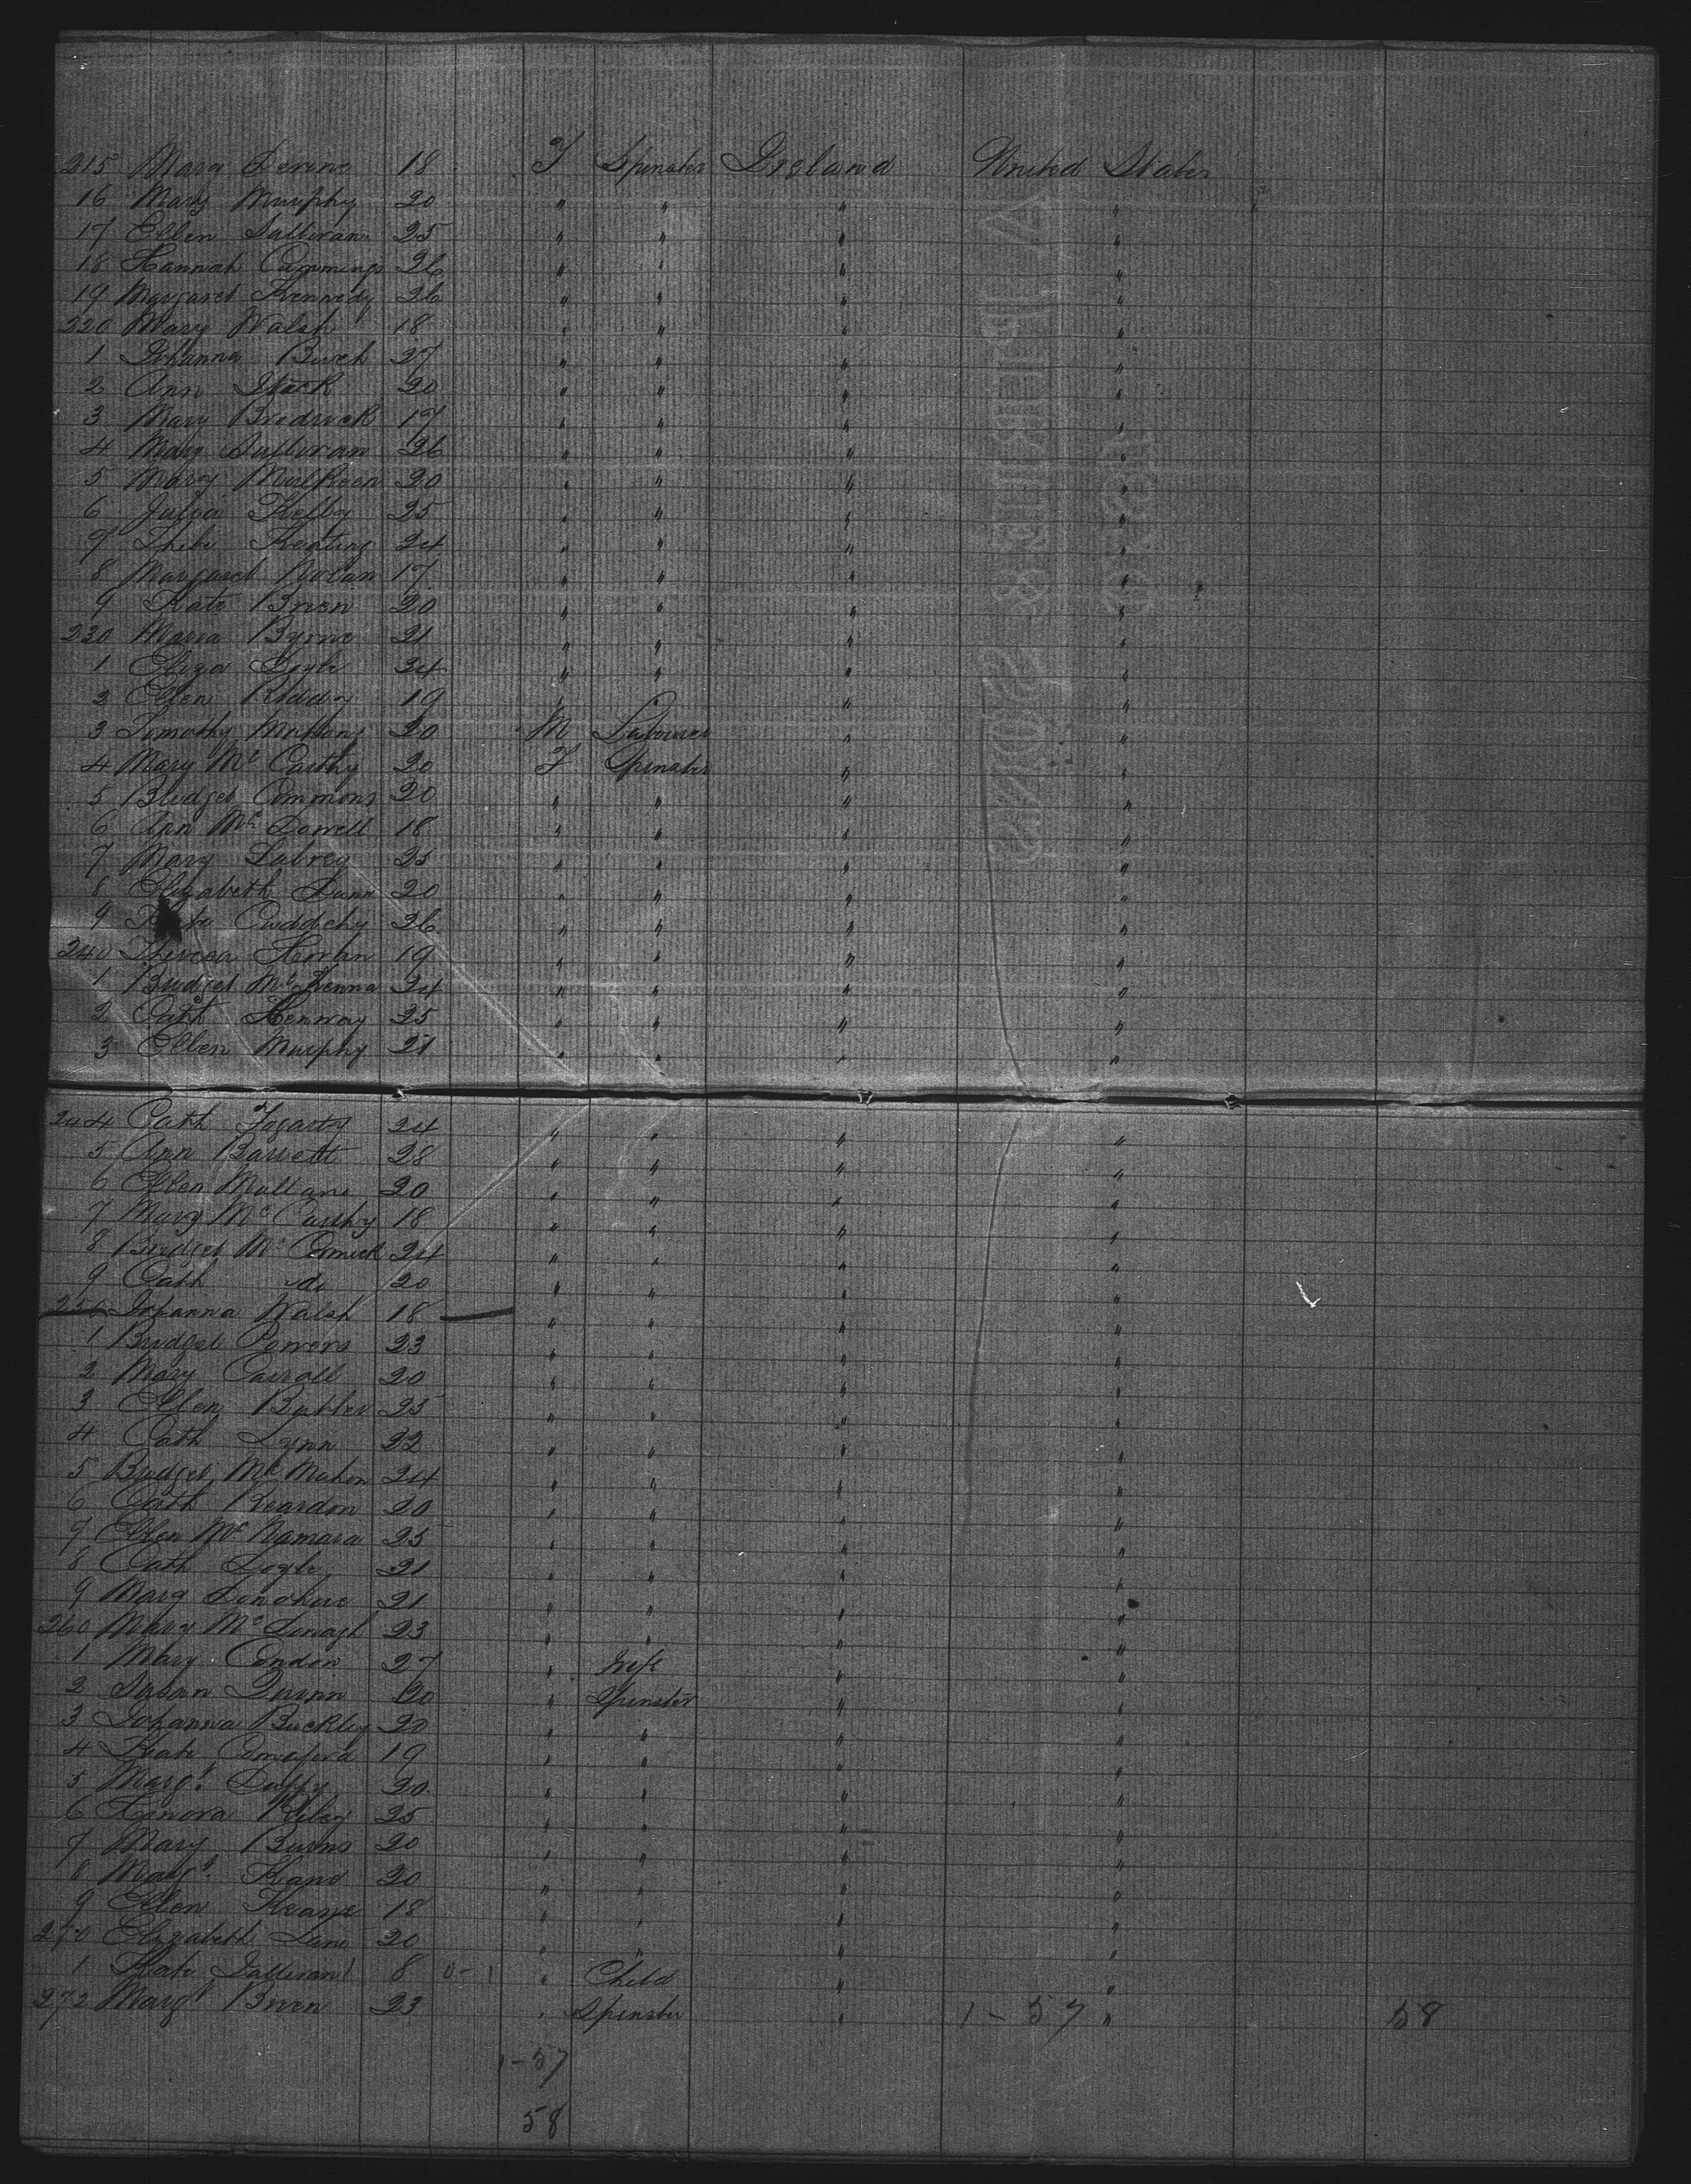 215 Mary Devine 18 F Spinster Ireland United States
16 Mary Murphy 20 " " " "
17 Ellen Sullivan 25 " " " "
18 Hannah Cummings 26 " " " "
19 Margaret Kennedy 26 " " " "
220 Mary Walsh 18 " " " "
1 Johanna Burch 27 " " " "
2 Ann Stack 20 " " " "
3 Mary Brodrick 17 " " " "
4 Mary Sullivan 26 " " " "
5 Mary Mulkeen 20 " " " "
6 Julia Kelly 25 " " " "
7 Keating 24 " " " "
8 Margaret Nolan 17 " " " "
9 Kate Brien 20 " " " "
230 Maria Byrne 21 " " " "
1 Eliza Doyle 24 " " " "
2 Ellen Roddy 19 " " " "
3 Timothy Mahony 20 M Labourer " "
4 Mary Mc Carthy 20 F Spinster " "
5 Bridget Commons 20 " " " "
6 Ann Mc Dowell 18 " " " "
7 Mary Labrey 25 " " " "
8 Elizabeth Dunn 20 " " " "
9 Kate Cuddehy 26 " " " "
240 Theresa Horan 19 " " " "
1 Bridget Mc Kenna 24 " " " "
2 Cath Henway 25 " " " "
3 Ellen Murphy 21 " " " "
244 Cath Fogarty 24 " " " "
5 Ann Barrett 28 " " " "
6 Ellen Mullane 20 " " " "
7 Mary Mc Carthy 18 " " " "
8 Bridget Mc Cormick 24 " " " "
9 Cath do 20 " " " "
250 Johanna Walsh 18 " " " "
1 Bridget Powers 23 " " " "
2 Mary Carroll 20 " " " "
3 Ellen Butler 25 " " " "
4 Cath Lynn 22 " " " "
5 Bridget Mc Mahon 24 " " " "
6 Cath Reardon 20 " " " "
7 Ellen Mc Namara 25 " " " "
8 Cath Doyle 21 " " " "
9 Mary Donohue 21 " " " "
260 Mary Mc Donagh 23 " " " "
1 Mary Condon 27 " Wife " "
2 Susan Quinn 20 " Spinster " "
3 Johanna Buckley 20 " " " "
4 Kate Comaford 19 " " " "
5 Margt Duffy 20 " " " "
6 Honora Riley 25 " " " "
7 Mary Burns 20 " " " "
8 Margt Kane 20 " " " "
9 Ellen Keane 18 " " " "
270 Elizabeth Lane 20 " " " "
1 Kate Sullivan 8 0-1 " Child " "
272 Margt Brien 23 " Spinster " 1-57 " 58
1-57
58